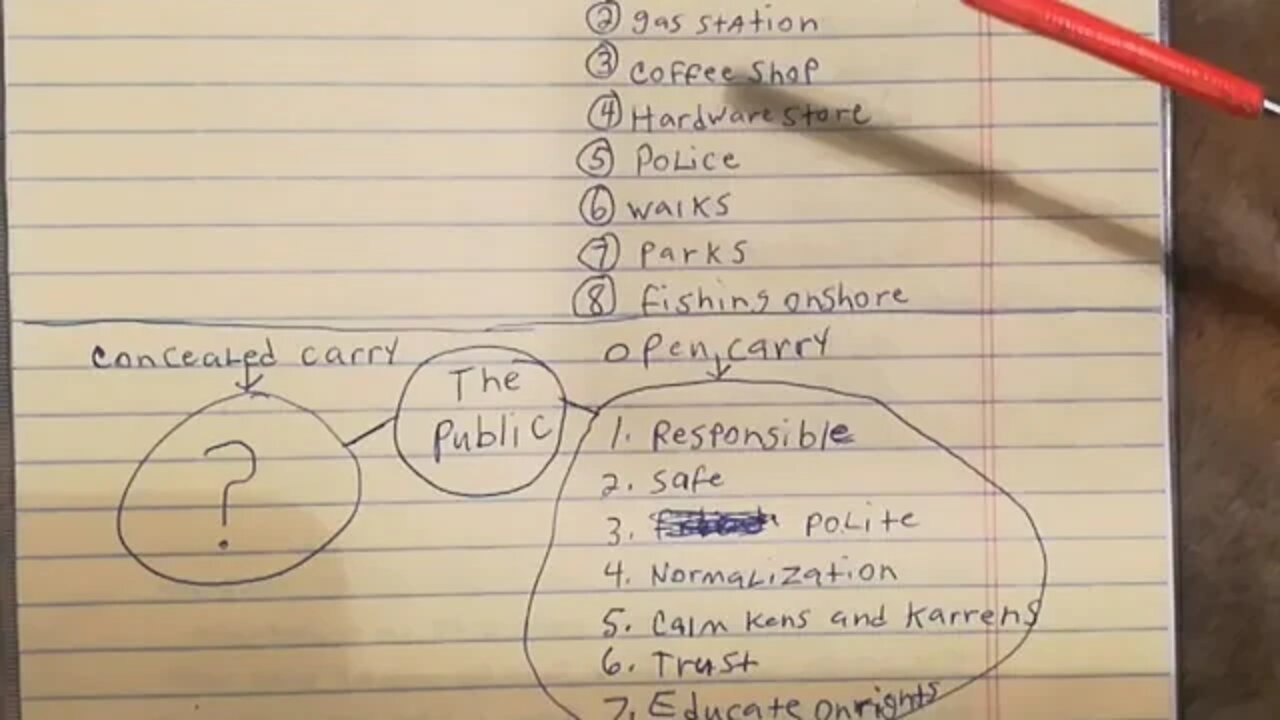 ② gas station
③ coffee shop
④ Hardware store
⑤ Police
⑥ walks
⑦ parks
⑧ fishing onshore
concealed carry
open carry
The
Public
?
1. Responsible
2. safe
3. polite
4. Normalization
5. Calm kens and Karrens
6. Trust
7. Educate on rights